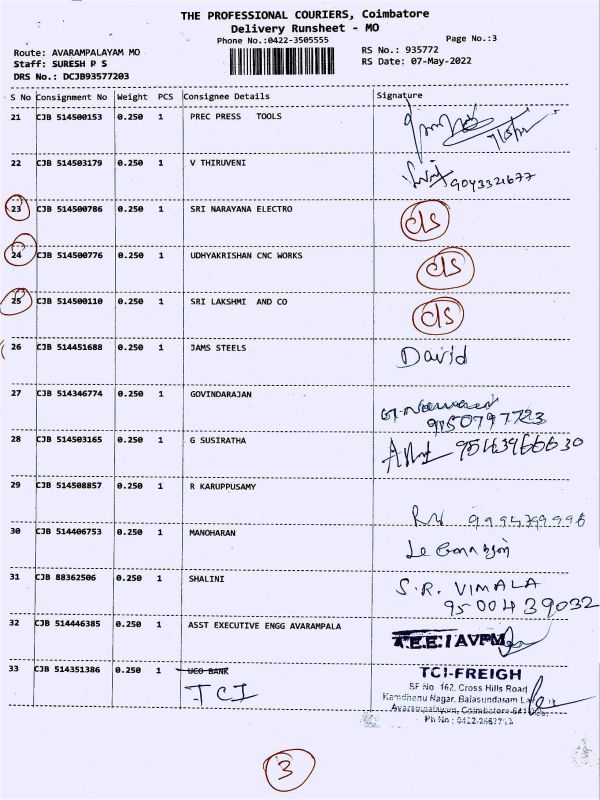 THE PROFESSIONAL COURIERS, Coimbatore
Delivery Runsheet - MO
Phone No.:0422-3505555 Page No.:3
Route: AVARAMPALAYAM MO RS No.: 935772
Staff: SURESH P S RS Date: 07-May-2022
DRS No.: DCJB93577203
S No Consignment No Weight PCS Consignee Details Signature
21 CJB 514500153 0.250 1 PREC PRESS TOOLS
22 CJB 514503179 0.250 1 V THIRUVENI 9043321677
23 CJB 514500786 0.250 1 SRI NARAYANA ELECTRO c/s
24 CJB 514500776 0.250 1 UDHYAKRISHAN CNC WORKS c/s
25 CJB 514500110 0.250 1 SRI LAKSHMI AND CO c/s
26 CJB 514451688 0.250 1 JAMS STEELS David
27 CJB 514346774 0.250 1 GOVINDARAJAN
9150797723
28 CJB 514503165 0.250 1 G SUSIRATHA 9543966630
29 CJB 514508857 0.250 1 R KARUPPUSAMY
30 CJB 514406753 0.250 1 MANOHARAN
31 CJB 88362506 0.250 1 SHALINI S.R. VIMALA
9500439032
32 CJB 514446385 0.250 1 ASST EXECUTIVE ENGG AVARAMPALA
33 CJB 514351386 0.250 1 UCO BANK TCI-FREIGH
TCI SF No 162, Cross Hills Road
Kamdhenu Nagar, Balasundaram
Avarampalayam, Coimbatore-641
Ph No : 0422-
3